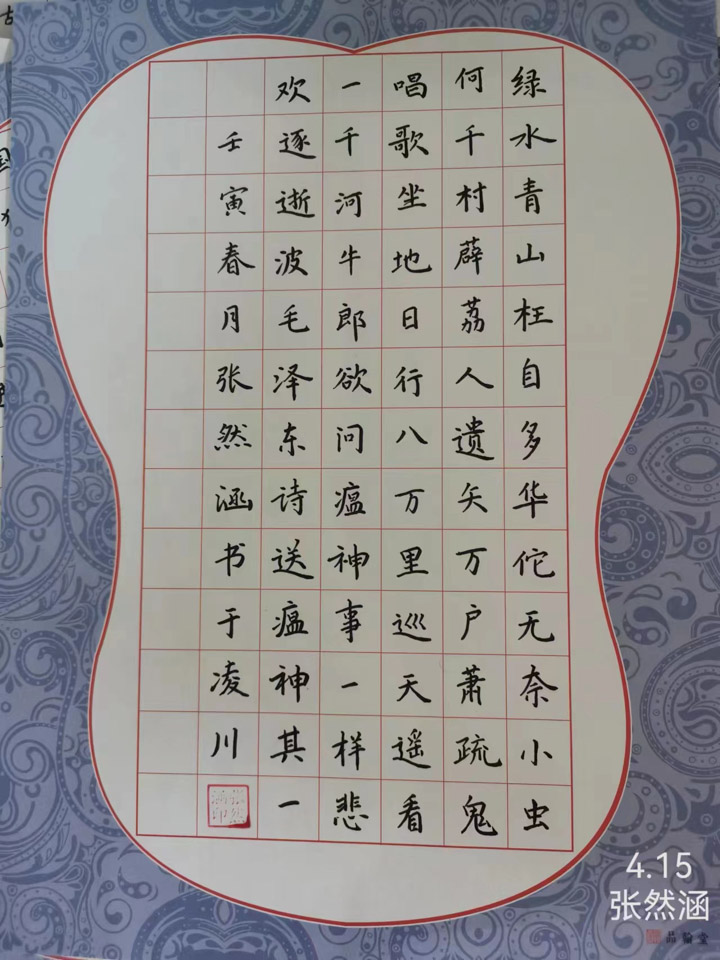 绿水青山枉自多华佗无奈小虫
何千村薜荔人遗矢万户萧疏鬼
唱歌坐地日行八万里巡天遥看
一千河牛郎欲问瘟神事一样悲
欢逐逝波毛泽东诗送瘟神其一
壬寅春月张然涵书于凌川
张然涵印
4.15
张然涵
品翰堂